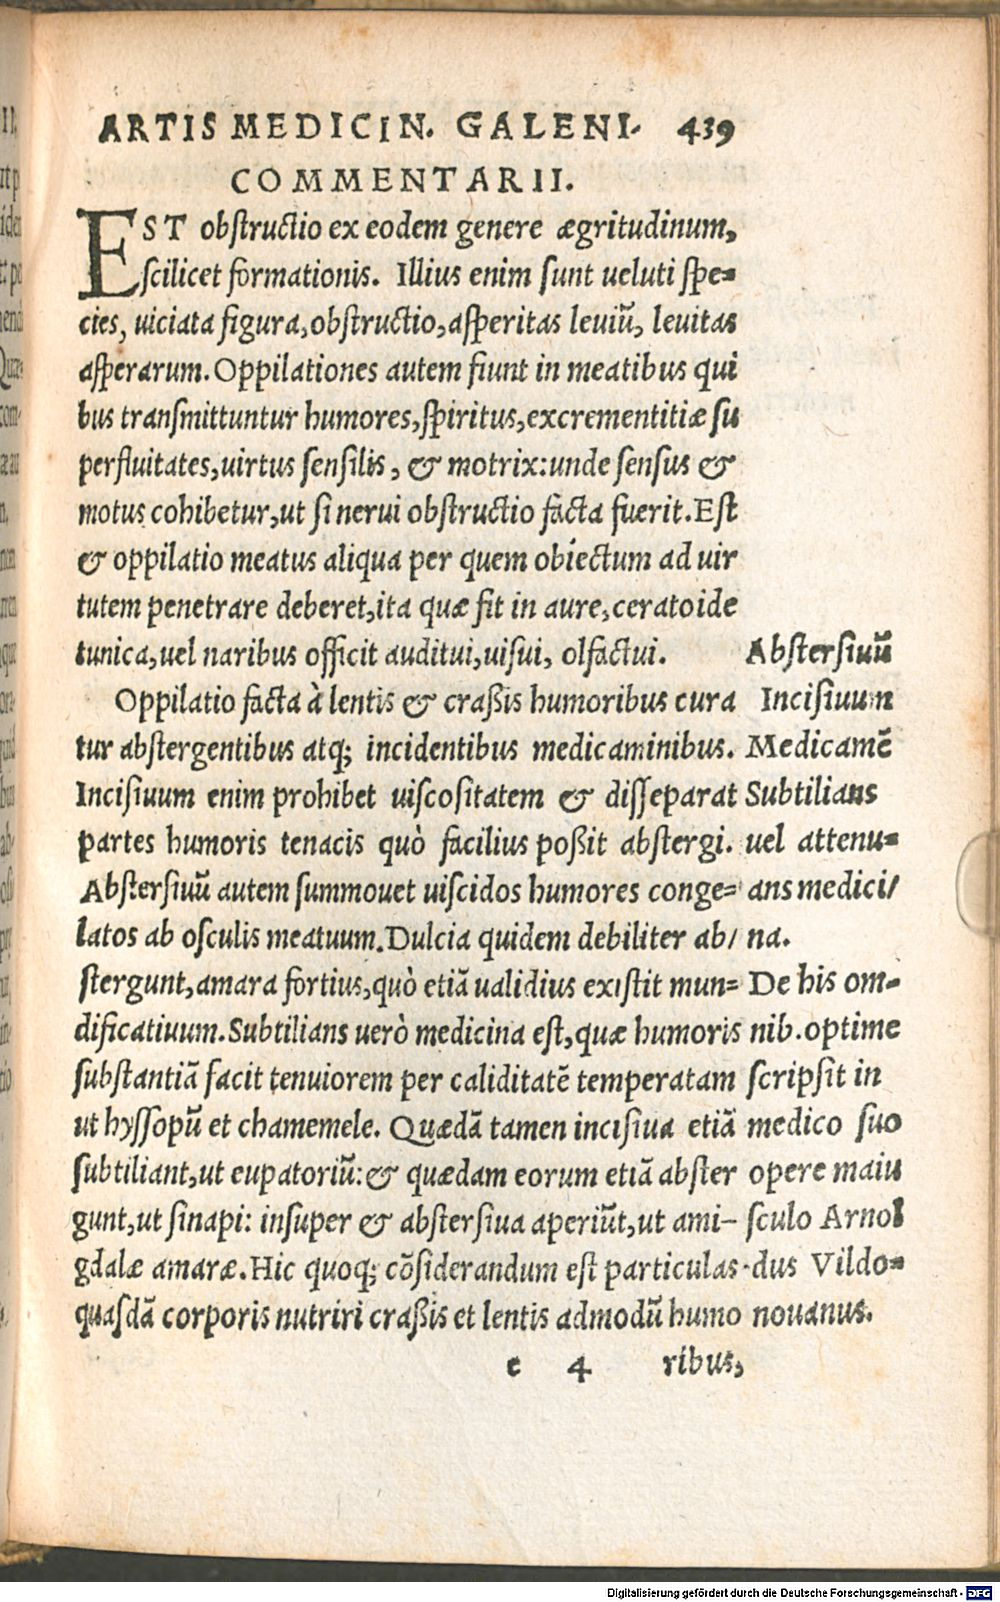 ARTIS MEDICIN. GALENI. 439
COMMENTARII.
EST obstructio ex eodem genere ægritudinum,
scilicet formationis. Illius enim sunt ueluti spe=
cies, uiciata figura, obstructio, asperitas leuiũ, leuitas
asperarum. Oppilationes autem fiunt in meatibus qui
bus transmittuntur humores, spiritus, excrementitiæ su
perfluitates, uirtus sensilis, & motrix: unde sensus &
motus cohibetur, ut si nerui obstructio facta fuerit. Est
& oppilatio meatus aliqua per quem obiectum ad uir
tutem penetrare deberet, ita quæ fit in aure, ceratoide
tunica, uel naribus officit auditui, uisui, olfactui.
Oppilatio facta à lentis & craßis humoribus cura
tur abstergentibus atq; incidentibus medicaminibus.
Incisiuum enim prohibet uiscositatem & disseparat
partes humoris tenacis quò facilius poßit abstergi.
Abstersiuũ autem summouet uiscidos humores conge=
latos ab osculis meatuum. Dulcia quidem debiliter ab/
stergunt, amara fortius, quò etiã ualidius existit mun=
dificatiuum. Subtilians uerò medicina est, quæ humoris
substantiã facit tenuiorem per caliditatẽ temperatam
ut hyssopũ et chamemele. Quædã tamen incisiua etiã
subtiliant, ut eupatoriũ: & quædam eorum etiã abster
gunt, ut sinapi: insuper & abstersiua aperiũt, ut ami-
gdalæ amaræ. Hic quoq; cõsiderandum est particulas
quasdã corporis nutriri craßis et lentis admodũ humo
e 4 ribus,
Abstersiuũ
Incisiuum
Medicamẽ
Subtilians
uel attenu=
ans medici/
na.
De his om-
nib. optime
scripsit in
medico suo
opere maiu
sculo Arnol
dus Vildo=
nouanus.
Digitalisierung gefördert durch die Deutsche Forschungsgemeinschaft - DFG